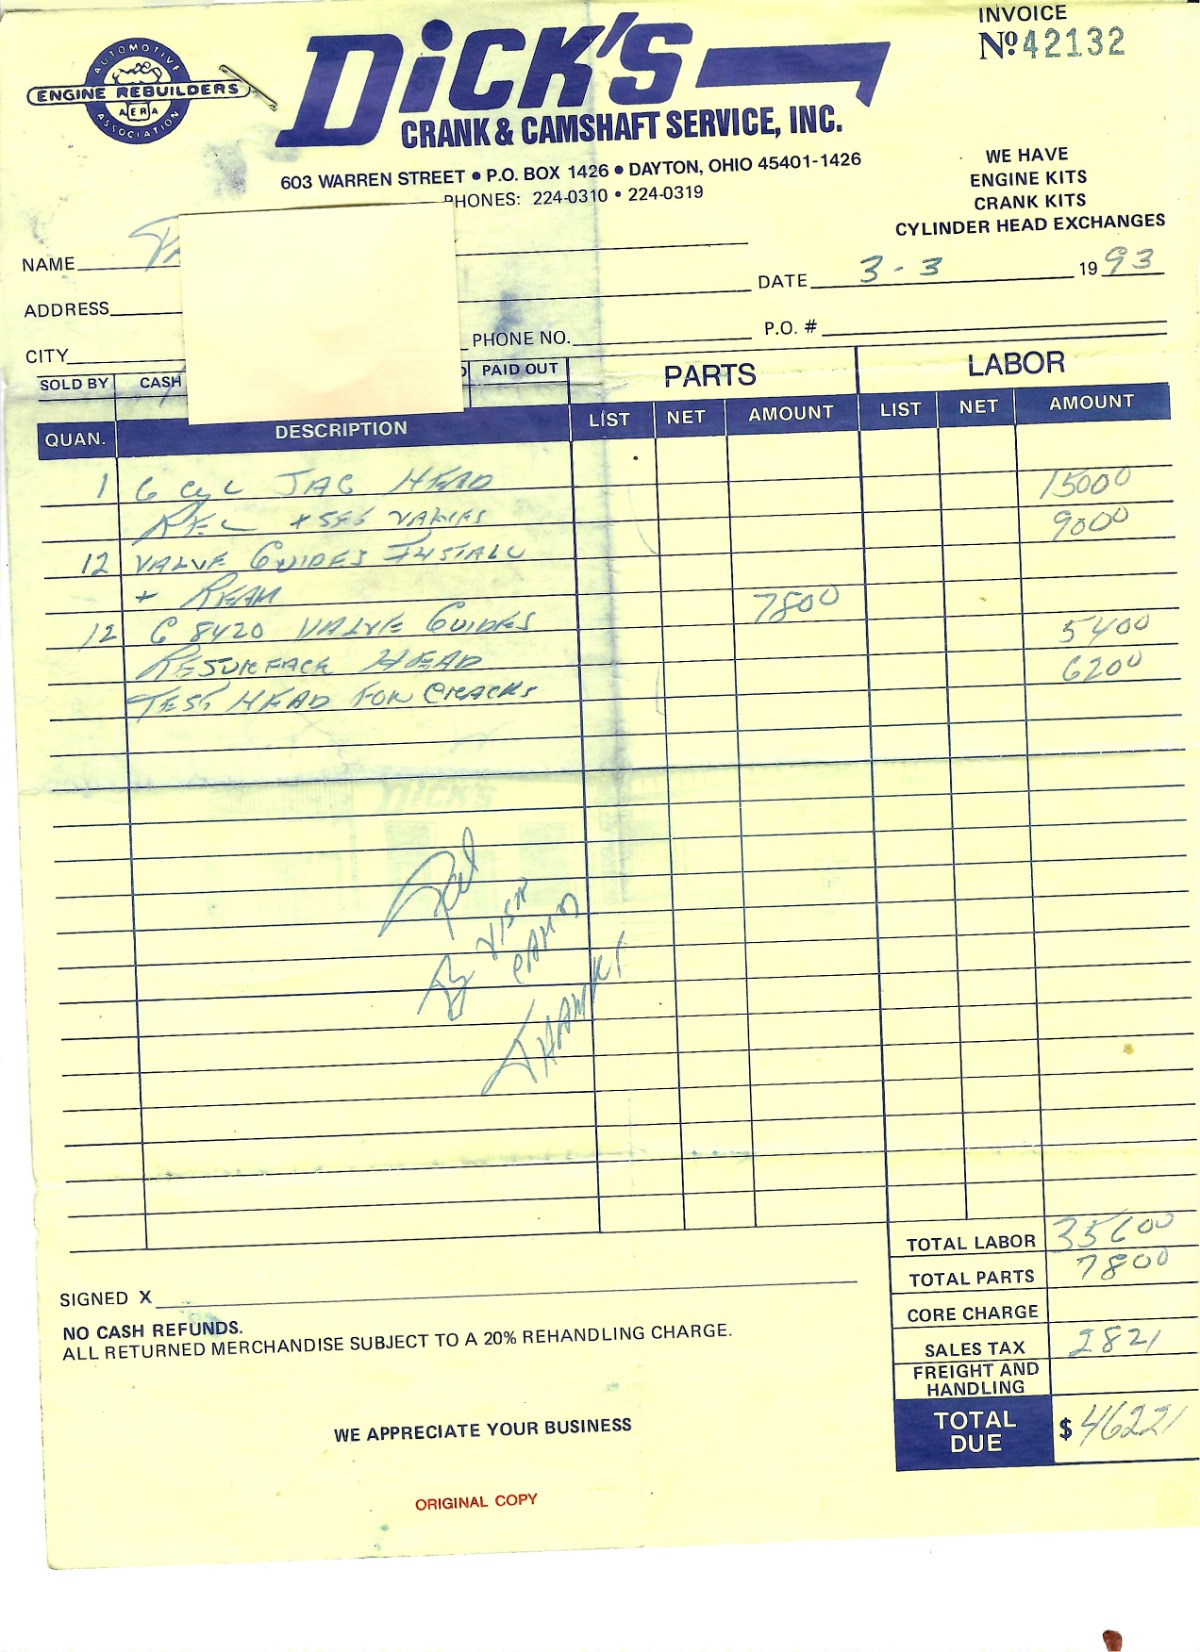 INVOICE
Nº 42132
AUTOMOTIVE
ENGINE REBUILDERS
AERA
ASSOCIATION
DiCK'S
CRANK & CAMSHAFT SERVICE, INC.
603 WARREN STREET • P.O. BOX 1426 • DAYTON, OHIO 45401-1426
PHONES: 224-0310 • 224-0319
WE HAVE
ENGINE KITS
CRANK KITS
CYLINDER HEAD EXCHANGES
NAME
DATE 3-3 1993
ADDRESS
CITY PHONE NO. P.O. #
SOLD BY CASH PAID OUT PARTS LABOR
QUAN. DESCRIPTION LIST NET AMOUNT LIST NET AMOUNT
1 6 CYL JAG HEAD 15000
REC + SET VALVES 9000
12 VALVE GUIDES INSTALL
+ REAM 7800
12 G 8420 VALVE GUIDES 5400
RESURFACE HEAD 6200
TEST HEAD FOR CRACKS
Pd
By VISA
CARD
THANKS
TOTAL LABOR 35600
TOTAL PARTS 7800
CORE CHARGE
SALES TAX 2821
FREIGHT AND
HANDLING
TOTAL
DUE $ 46221
SIGNED X
NO CASH REFUNDS.
ALL RETURNED MERCHANDISE SUBJECT TO A 20% REHANDLING CHARGE.
WE APPRECIATE YOUR BUSINESS
ORIGINAL COPY